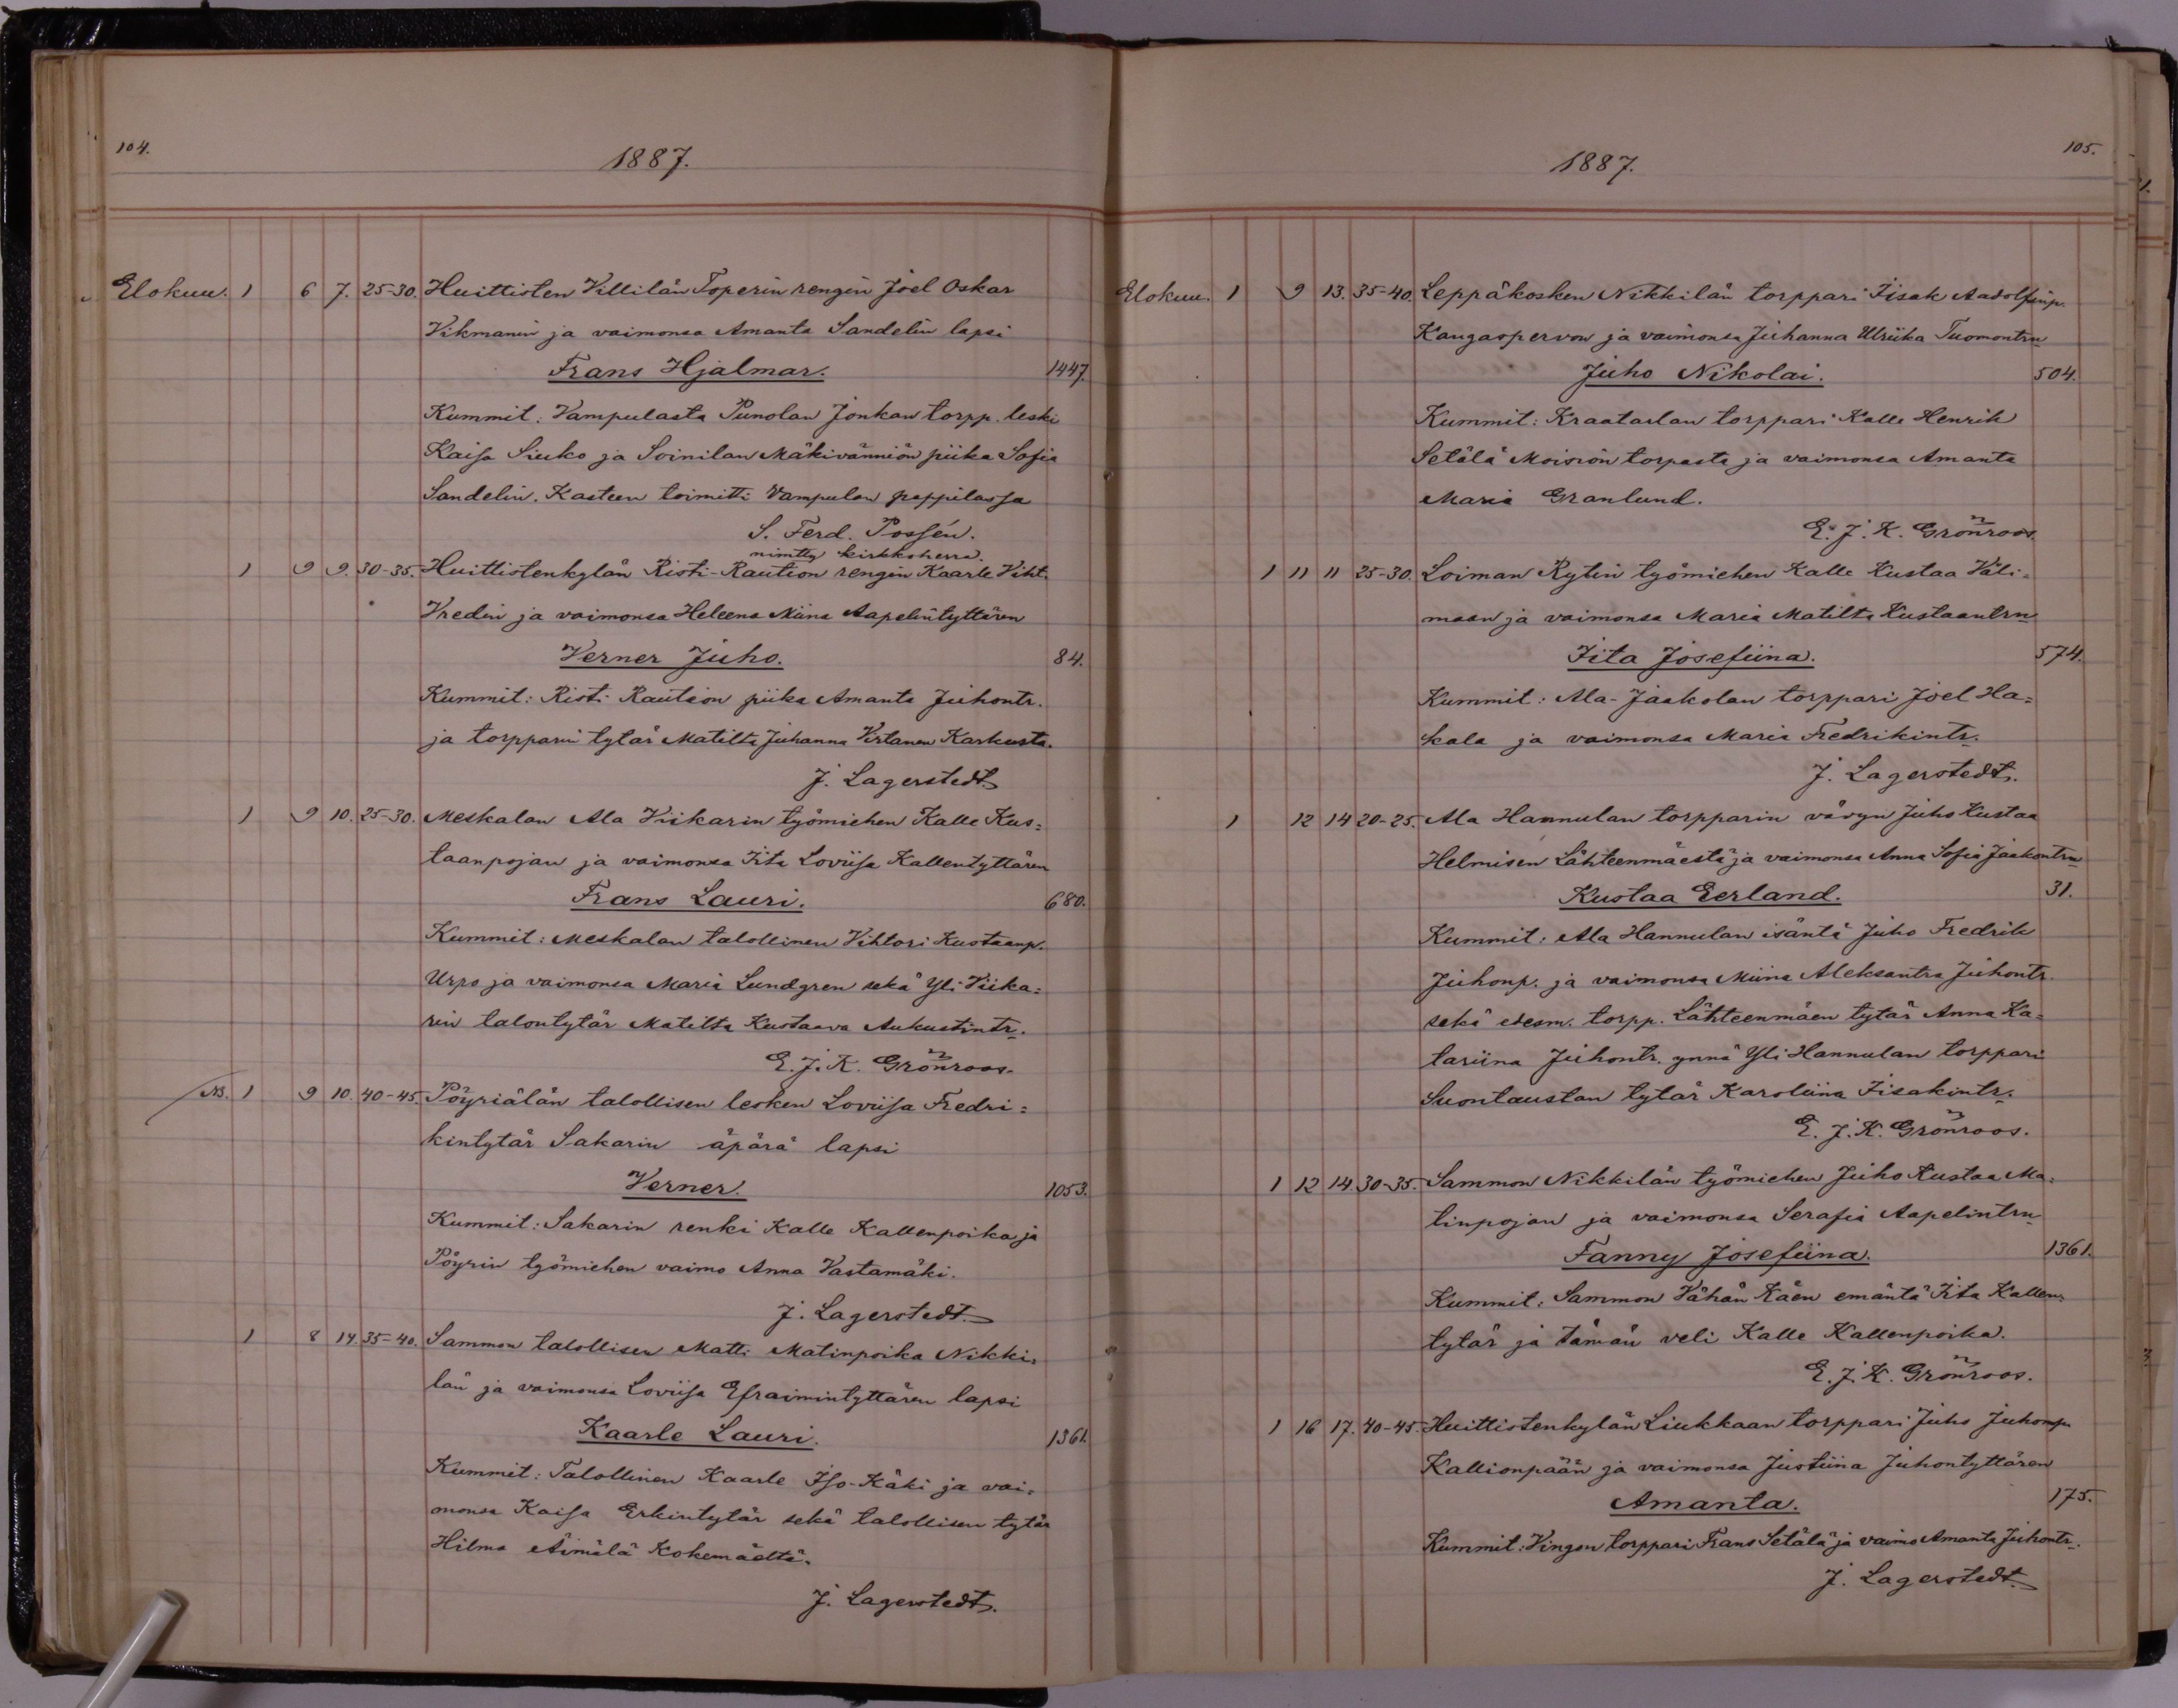 104.
1887.
Elokuu. 1 6 7. 25-30. Huittisten Villilän Toperin rengin Joel Oskar
Vikmanin ja vaimonsa Amanta Sandelin lapsi
Frans Hjalmar. 1447.
Kummit: Vampulasta Punolan Jonkan torpp. leski
Kaisa Siuko ja Soinilan Mäkivänniön piika Sofia
Sandelin. Kasteen toimitti Vampulan pappilassa
S. Ferd. Possén.
nimitty kirkkoherra.
1 9 9. 30-35. Huittistenkylän Risti-Raution rengin Kaarle Viht.
Vredin ja vaimonsa Heleena Miina Aapelintyttären
Verner Juho. 84.
Kummit: Risti Raution piika Amanta Juhontr.
ja torpparin tytär Matilta Juhanna Virtanen Karkusta.
J. Lagerstedt.
1 9 10. 25-30. Meskalan Ala Viikarin työmiehen Kalle Kus=
taanpojan ja vaimonsa Iita Loviisa Kallentyttären
Frans Lauri. 680.
Kummit: Meskalan talollinen Vihtori Kustaanp.
Urpo ja vaimonsa Maria Lundgren sekä Yli Viika=
rin talontytär Matilta Kustaava Aukustintr.
E. J. K. Grönroos.
1 9 10. 40-45. Pöyriälän talollisen lesken Loviisa Fredri=
kintytär Sakarin äpärä lapsi
Verner. 1053.
Kummit: Sakarin renki Kalle Kallenpoika ja
Pöyrin työmiehen vaimo Anna Vastamäki.
J. Lagerstedt.
1 8 14. 35-40. Sammon talollisen Matti Matinpoika Nikki=
län ja vaimonsa Loviisa Efraimintyttären lapsi
Kaarle Lauri. 1361.
Kummit: Talollinen Kaarle Iso-Käki ja vai=
monsa Kaisa Erkintytär sekä talollisen tytär
Hilma Äimälä Kokemäeltä.
J. Lagerstedt.
105.
1887.
Elokuu. 1 9 13. 35-40. Leppäkosken Nikkilän torppari Iisak Aadolfinp.
Kangaspervon ja vaimonsa Juhanna Ulriika Tuomontrn
Juho Nikolai. 504.
Kummit: Kraatarlan torppari Kalle Henrik
Setälä Moision torpasta ja vaimonsa Amanta
Maria Granlund.
E. J. K. Grönroos.
1 11 11 25-30. Loiman Rytin työmiehen Kalle Kustaa Väli=
maan ja vaimonsa Maria Matilta Kustaantrn
Iita Josefiina. 574.
Kummit: Ala-Jaakolan torppari Joel Ha=
kala ja vaimonsa Maria Fredrikintr.
J. Lagerstedt.
1 12 14 20-25. Ala Hannulan torpparin vävyn Juho Kustaa
Helmisen Lähteenmäestä ja vaimonsa Anna Sofia Jaakontrn
Kustaa Eerland. 31.
Kummit: Ala Hannulan isäntä Juho Fredrik
Juhonp. ja vaimonsa Miina Aleksantra Juhontr.
sekä edesm. torpp. Lähteenmäen tytär Anna Ka=
tariina Juhontr. ynnä Yli Hannulan torppari
Suontaustan tytär Karoliina Iisakintr.
E. J. K. Grönroos.
1 12 14. 30-35. Sammon Nikkilän työmiehen Juho Kustaa Ma=
tinpojan ja vaimonsa Serafia Aapelintrn
Fanny Josefiina. 1361.
Kummit: Sammon Vähän Käen emäntä Iita Kallen=
tytär ja tämän veli Kalle Kallenpoika.
E. J. K. Grönroos.
1 16 17. 40-45. Huittistenkylän Liukkaan torppari Juho Juhonp.
Kallionpään ja vaimonsa Justiina Juhontyttären
Amanta. 175.
Kummit: Vingon torppari Frans Setälä ja vaimo Amanta Juhontr.
J. Lagerstedt.